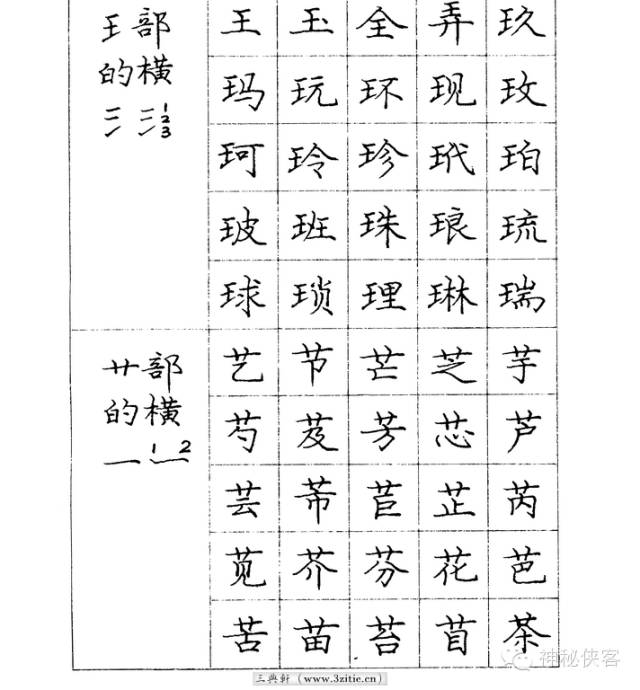 王部
的横
王 玉 全 弄 玖
玛 玩 环 现 玫
珂 玲 珍 玳 珀
玻 班 珠 琅 琉
球 琐 理 琳 瑞
艹部
的横
1 2
艺 节 芒 芝 芋
芍 芨 芳 芯 芦
芸 芾 苣 芷 芮
苋 芥 芬 花 芭
苦 苗 苔 苜 茶
三典轩(www.3zitie.cn)
神秘侠客